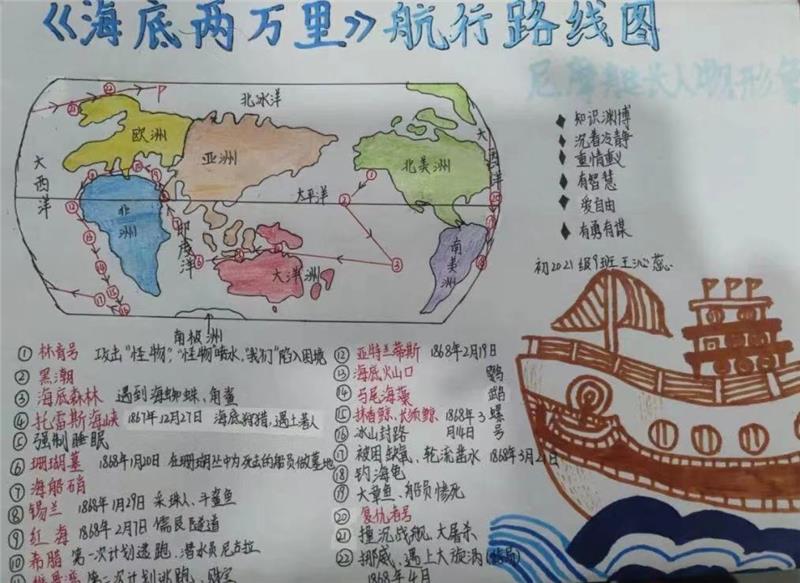 《海底两万里》航行路线图
尼摩船长人物形象
知识渊博
沉着冷静
重情重义
有智慧
爱自由
有勇有谋
初2021级9班 王沁蕊
北冰洋
欧洲
亚洲
北美洲
大西洋
太平洋
非洲
印度洋
大洋洲
南美洲
南极洲
① 林肯号 攻击"怪物","怪物"喷水,"我们"陷入困境
② 黑潮
③ 海底森林 遇到海蜘蛛、角鲨
④ 托雷斯海峡 1867年12月27日 海底狩猎,遇土著人
⑤ 强制睡眠
⑥ 珊瑚墓 1868年1月20日 在珊瑚丛中为死去的船员做墓地
⑦ 海船硝
⑧ 锡兰 1868年1月29日 采珠人、斗鲨鱼
⑨ 红海 1868年2月7日 儒艮 隧道
⑩ 希腊 第一次计划逃跑,潜水员尼古拉
第二次计划逃跑
⑫ 亚特兰蒂斯 1868年2月19日
⑬ 海底火山口
⑭ 马尾海藻
⑮ 抹香鲸、长须鲸 1868年3月14日
鹦鹉螺号
⑯ 冰山封路
⑰ 被困缺氧、轮流凿冰 1868年3月2日
⑱ 钓海龟
⑲ 大章鱼、船员惨死
⑳ 复仇者号
21 撞沉战舰,大屠杀
22 挪威,遇上大旋涡(结局)
1868年4月